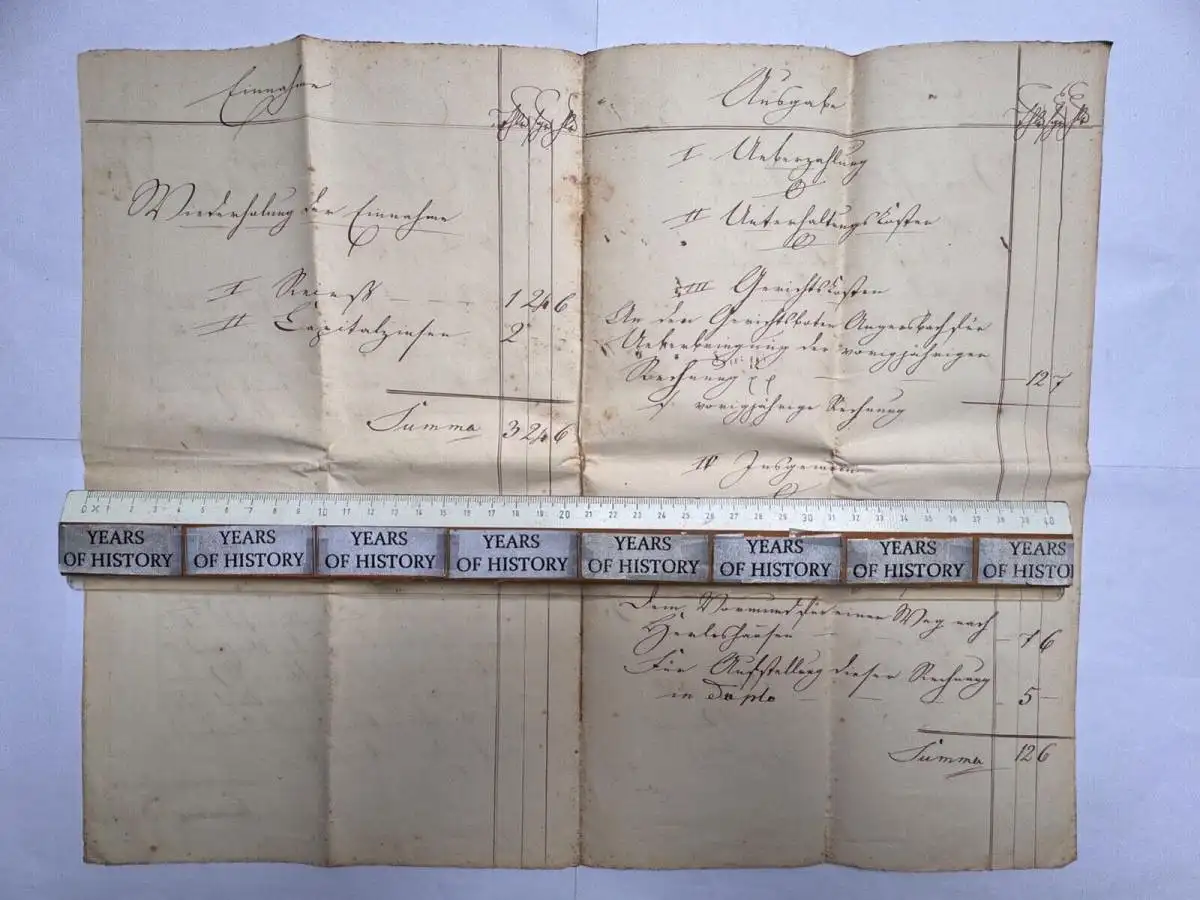 Einnahme
Wiederholung der Einnahme
I Receß 1 24 6
II Capitalzinsen 2
Summa 3 24 6
Ausgabe
I Ueberzahlung
II Unterhaltungskosten
III Gerichtskosten
An den Gerichtsboten Angersbach für
Ueberbringung der vorigjährigen
Rechnung 12 7
vorigjährige Rechnung
IV Insgemein
0 1 2 3 4 5 6 7 8 9 10 11 12 13 14 15 16 17 18 19 20 21 22 23 24 25 26 27 28 29 30 31 32 33 34 35 36 37 38 39 40
YEARS OF HISTORY YEARS OF HISTORY YEARS OF HISTORY YEARS OF HISTORY YEARS OF HISTORY YEARS OF HISTORY YEARS OF HISTORY YEARS OF HISTO
Dem Vormund für einen Weg nach
Herleshausen 7 6
Für Aufstellung dieser Rechnung
in duplo 5
Summa 12 6